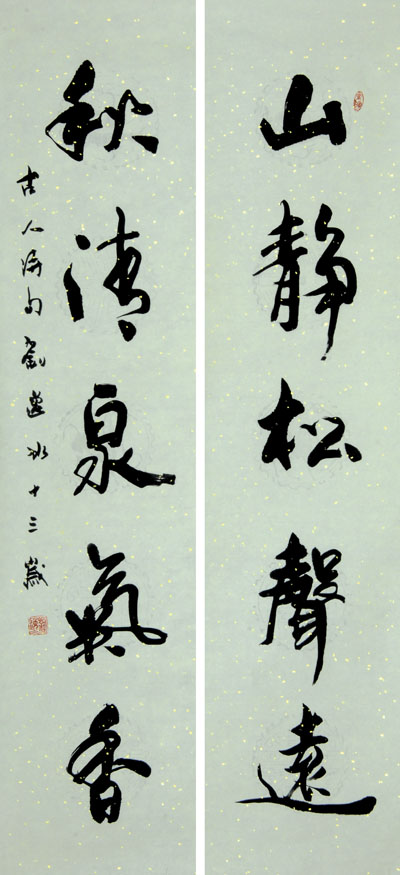 山静松聲遠
秋清泉氣香
古人語句劉逸冰十三歲